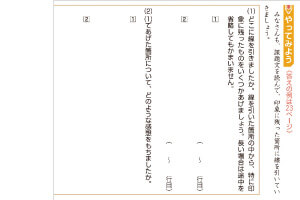 やってみよう（答えの例は23ページ）
みなさんも、課題文を読んで、印象に残った箇所に線を引いてい
きましょう。
(1) どこに線を引きましたか。線を引いた箇所の中から、特に印
象に残ったものをいくつかあげましょう。長い場合は途中を
省略してもかまいません。
1 （　～　行目）
2 （　～　行目）
(2) (1)であげた箇所について、どのような感想をもちましたか。
1
2